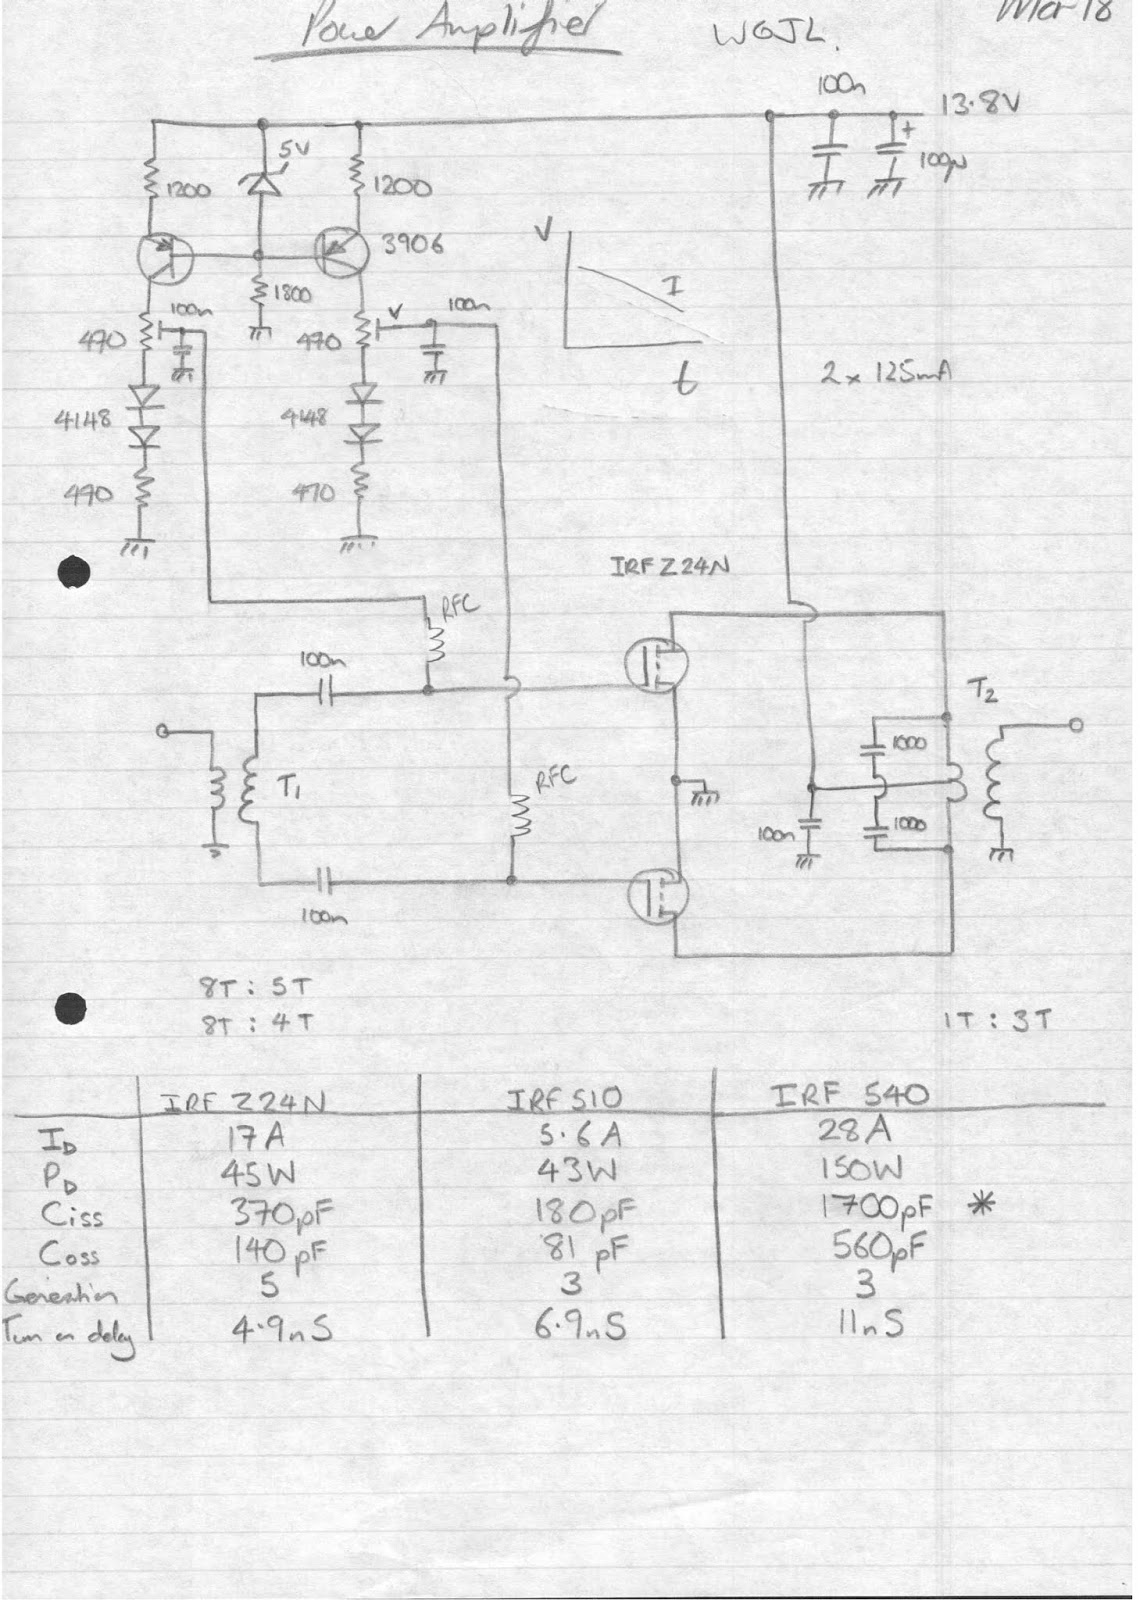 Power Amplifier WGJL. Mar 18
100n
13.8V
+
100μ
5V
1200
1200
3906
V
I
t
1800
100n
V
100n
470
470
2 x 125mA
4148
4148
470
470
IRFZ24N
RFC
100n
T2
1000
T1
RFC
1000
100n
100n
8T : 5T
8T : 4T
1T : 3T
IRF Z24N IRF 510 IRF 540
ID 17A 5.6A 28A
PD 45W 43W 150W
Ciss 370pF 180pF 1700pF *
Coss 140pF 81pF 560pF
Generation 5 3 3
Turn on delay 4.9nS 6.9nS 11nS